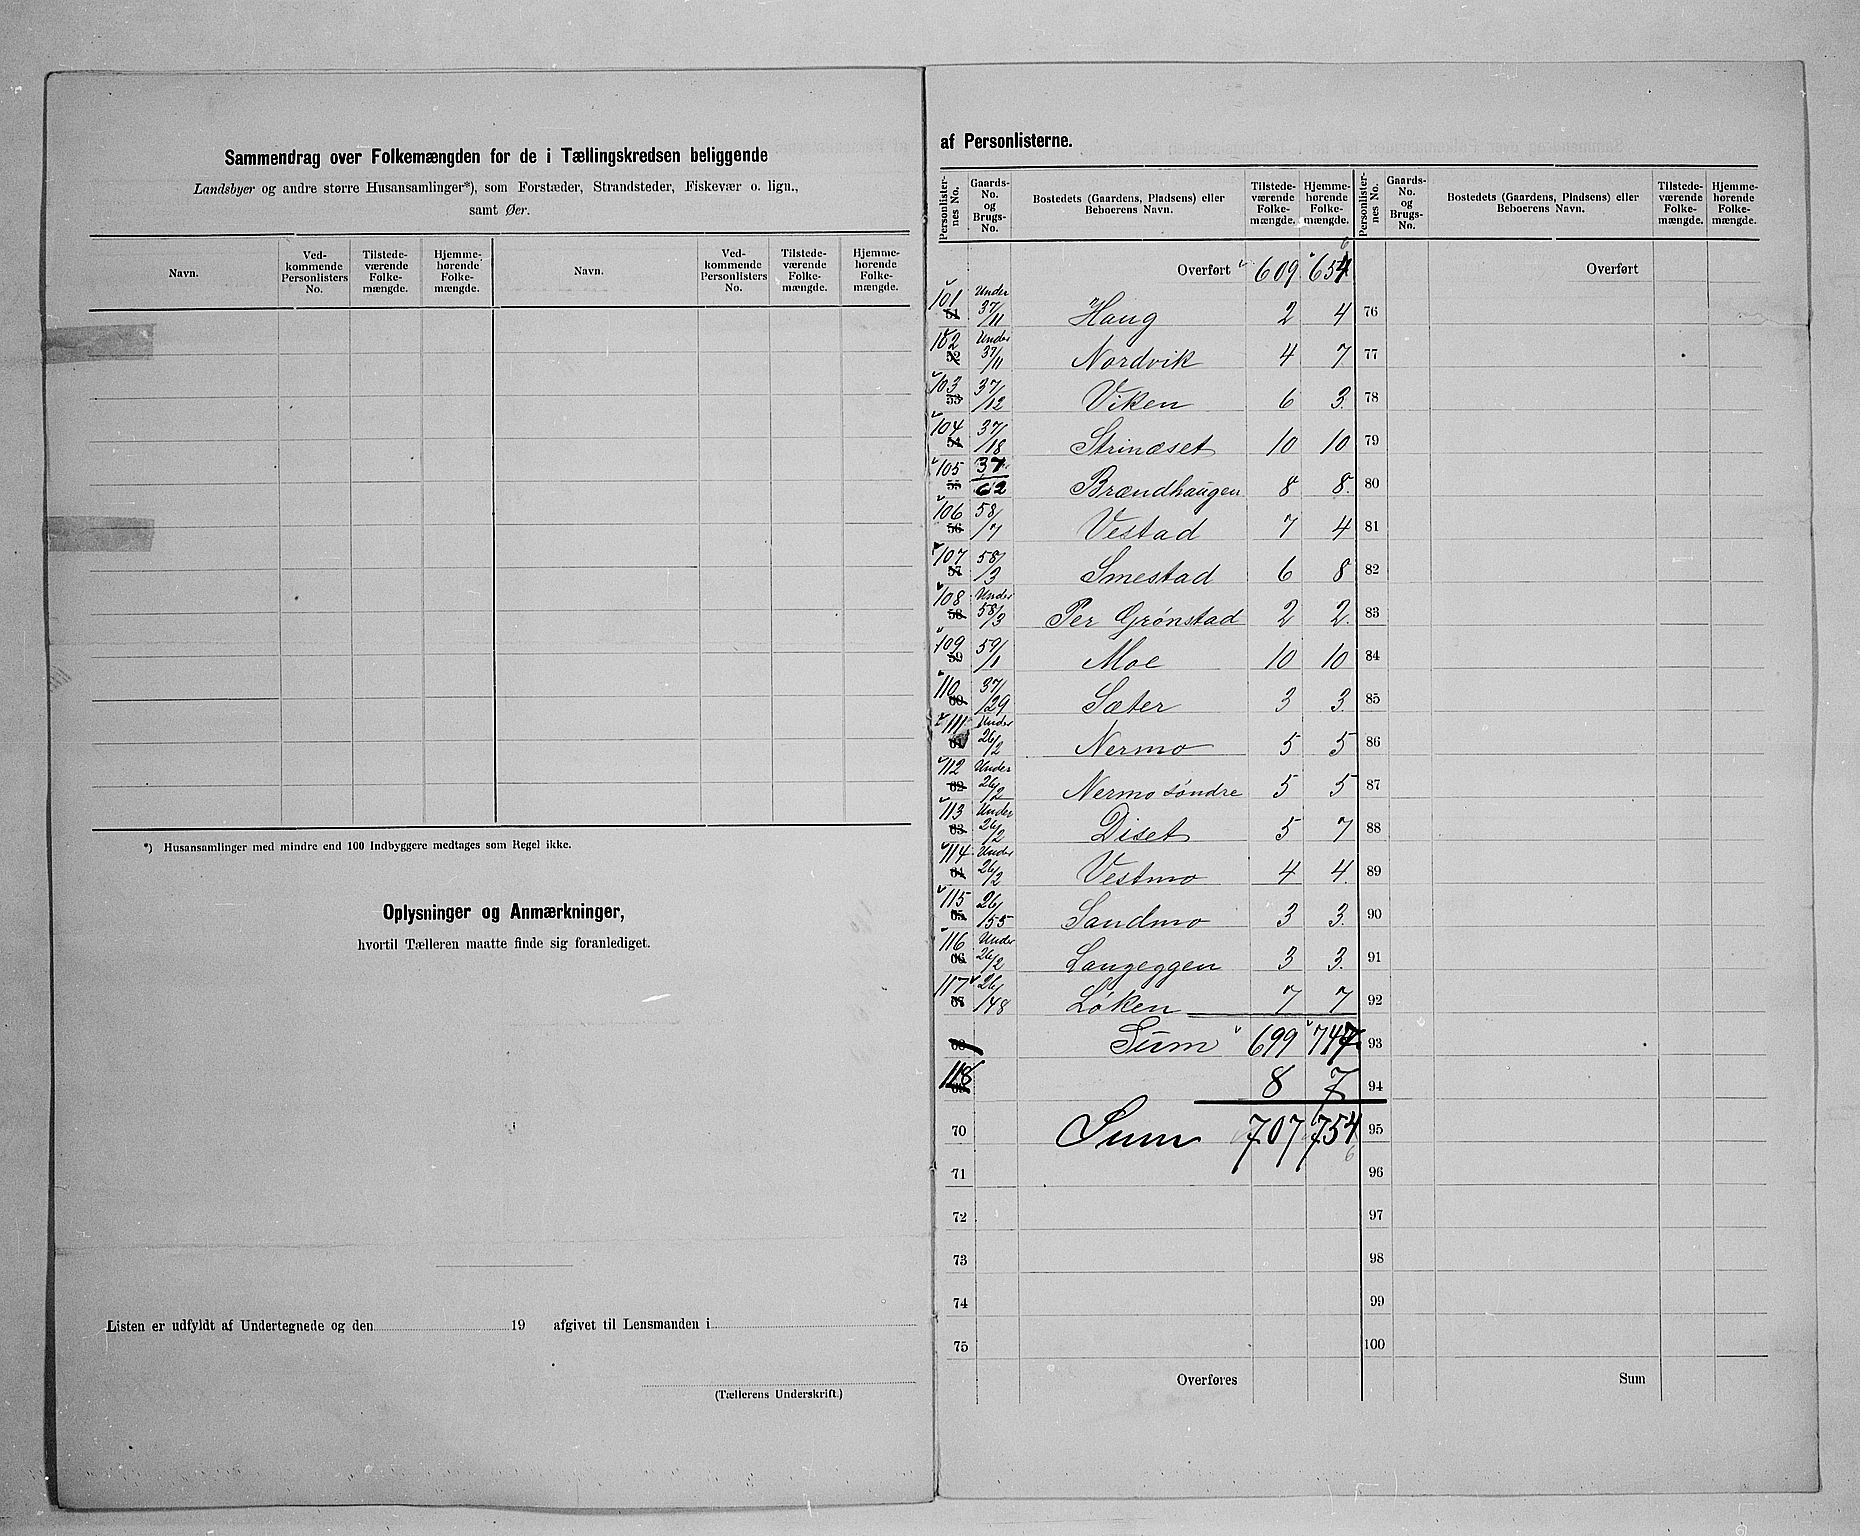 Sammendrag over Folkemængden for de i Tællingskredsen beliggende
Landsbyer og andre større Husansamlinger*), som Forstæder, Strandsteder, Fiskevær o. lign.,
samt Øer.
Navn. Vedkommende Personlisters No. Tilstedeværende Folkemængde. Hjemmehørende Folkemængde. Navn. Vedkommende Personlisters No. Tilstedeværende Folkemængde. Hjemmehørende Folkemængde.
*) Husansamlinger med mindre end 100 Indbyggere medtages som Regel ikke.
Oplysninger og Anmærkninger,
hvortil Tælleren maatte finde sig foranlediget.
Listen er udfyldt af Undertegnede og den 19 afgivet til Lensmanden i
(Tællerens Underskrift.)
af Personlisterne.
Personlisternes No. Gaards-No. og Brugs-No. Bostedets (Gaardens, Pladsens) eller Beboerens Navn. Tilstedeværende Folkemængde. Hjemmehørende Folkemængde. Personlisternes No. Gaards-No. og Brugs-No. Bostedets (Gaardens, Pladsens) eller Beboerens Navn. Tilstedeværende Folkemængde. Hjemmehørende Folkemængde.
Overført 609 654 Overført
101 51 Under 37/11 Haug 2 4 76
102 52 Under 37/11 Nordvik 4 7 77
103 53 37/12 Viken 6 3 78
104 54 37/18 Strinæset 10 10 79
105 55 37/62 Brændhaugen 8 8. 80
106 56 58/7 Vestad 7 4 81
107 57 58/3 Smestad 6 8 82
108 58 Under 58/3 Per Grønstad 2 2. 83
109 59 59/1 Moe 10 10 84
110 60 37/29 Sæter 3 3 85
111 61 Under 26/2 Nermo 5 5 86
112 62 Under 26/2 Nermo søndre 5 5 87
113 63 Under 26/2 Diset 5 7 88
114 64 Under 26/2 Vestmo 4 4. 89
115 65 26/155 Sandmo 3 3. 90
116 66 Under 26/2 Langeggen 3 3. 91
117 67 26/148 Løken 7 7 92
68 Sum 699 747 93
118 69 8 7 94
70 Sum 707 754 95
6
71 96
72 97
73 98
74 99
75 100
Overføres Sum